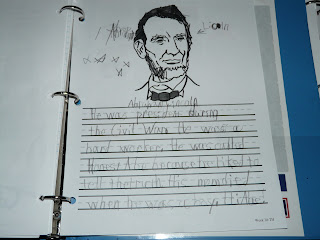 Abraham Lincoln
He was president during
the Civil War. He was a
hard worker. He was called
Honest Abe because he liked to
tell the truth. His mom died
when he was a boy.